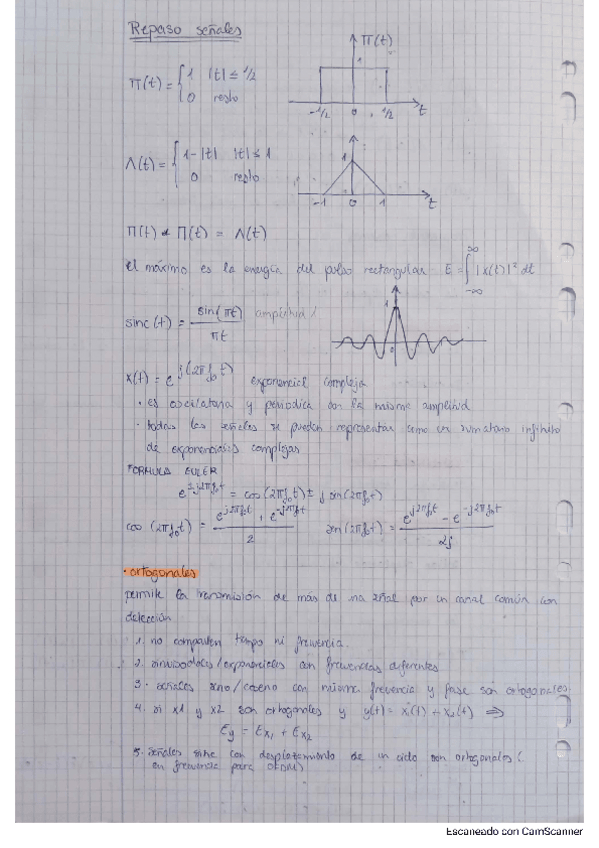 Repaso señales
Π(t)
Π(t) = { 1 |t| ≤ 1/2
0 resto
1
-1/2 0 1/2 t
Λ(t) = { 1-|t| |t| ≤ 1
0 resto
1
-1 0 1 t
Π(t) * Π(t) = Λ(t)
el máximo es la energía del pulso rectangular E = ∫ |x(t)|² dt
∞
-∞
sinc(t) = sin(πt) / πt amplitud 1
1
0
x(t) = e^j(2πf₀t) exponencial compleja
· es oscilatoria y periodica con la misma amplitud
· todas las señales se pueden representar como un sumatorio infinito
de exponenciales complejas
FORMULA EULER
e^±j2πf₀t = cos(2πf₀t) ± j sen(2πf₀t)
cos(2πf₀t) = e^j2πf₀t + e^-j2πf₀t / 2 sen(2πf₀t) = e^j2πf₀t - e^-j2πf₀t / 2j
· ortogonales
permite la transmisión de más de una señal por un canal común con
detección
1. no comparten tiempo ni frecuencia.
2. sinusoidales/exponenciales con frecuencias diferentes
3. señales seno/coseno con misma frecuencia y fase son ortogonales
4. si x1 y x2 son ortogonales y y(t) = x₁(t) + x₂(t) ⇒
Ey = Ex₁ + Ex₂
5. señales sinc con desplazamiento de un ciclo son ortogonales (
en frecuencia para OFDM)
Escaneado con CamScanner